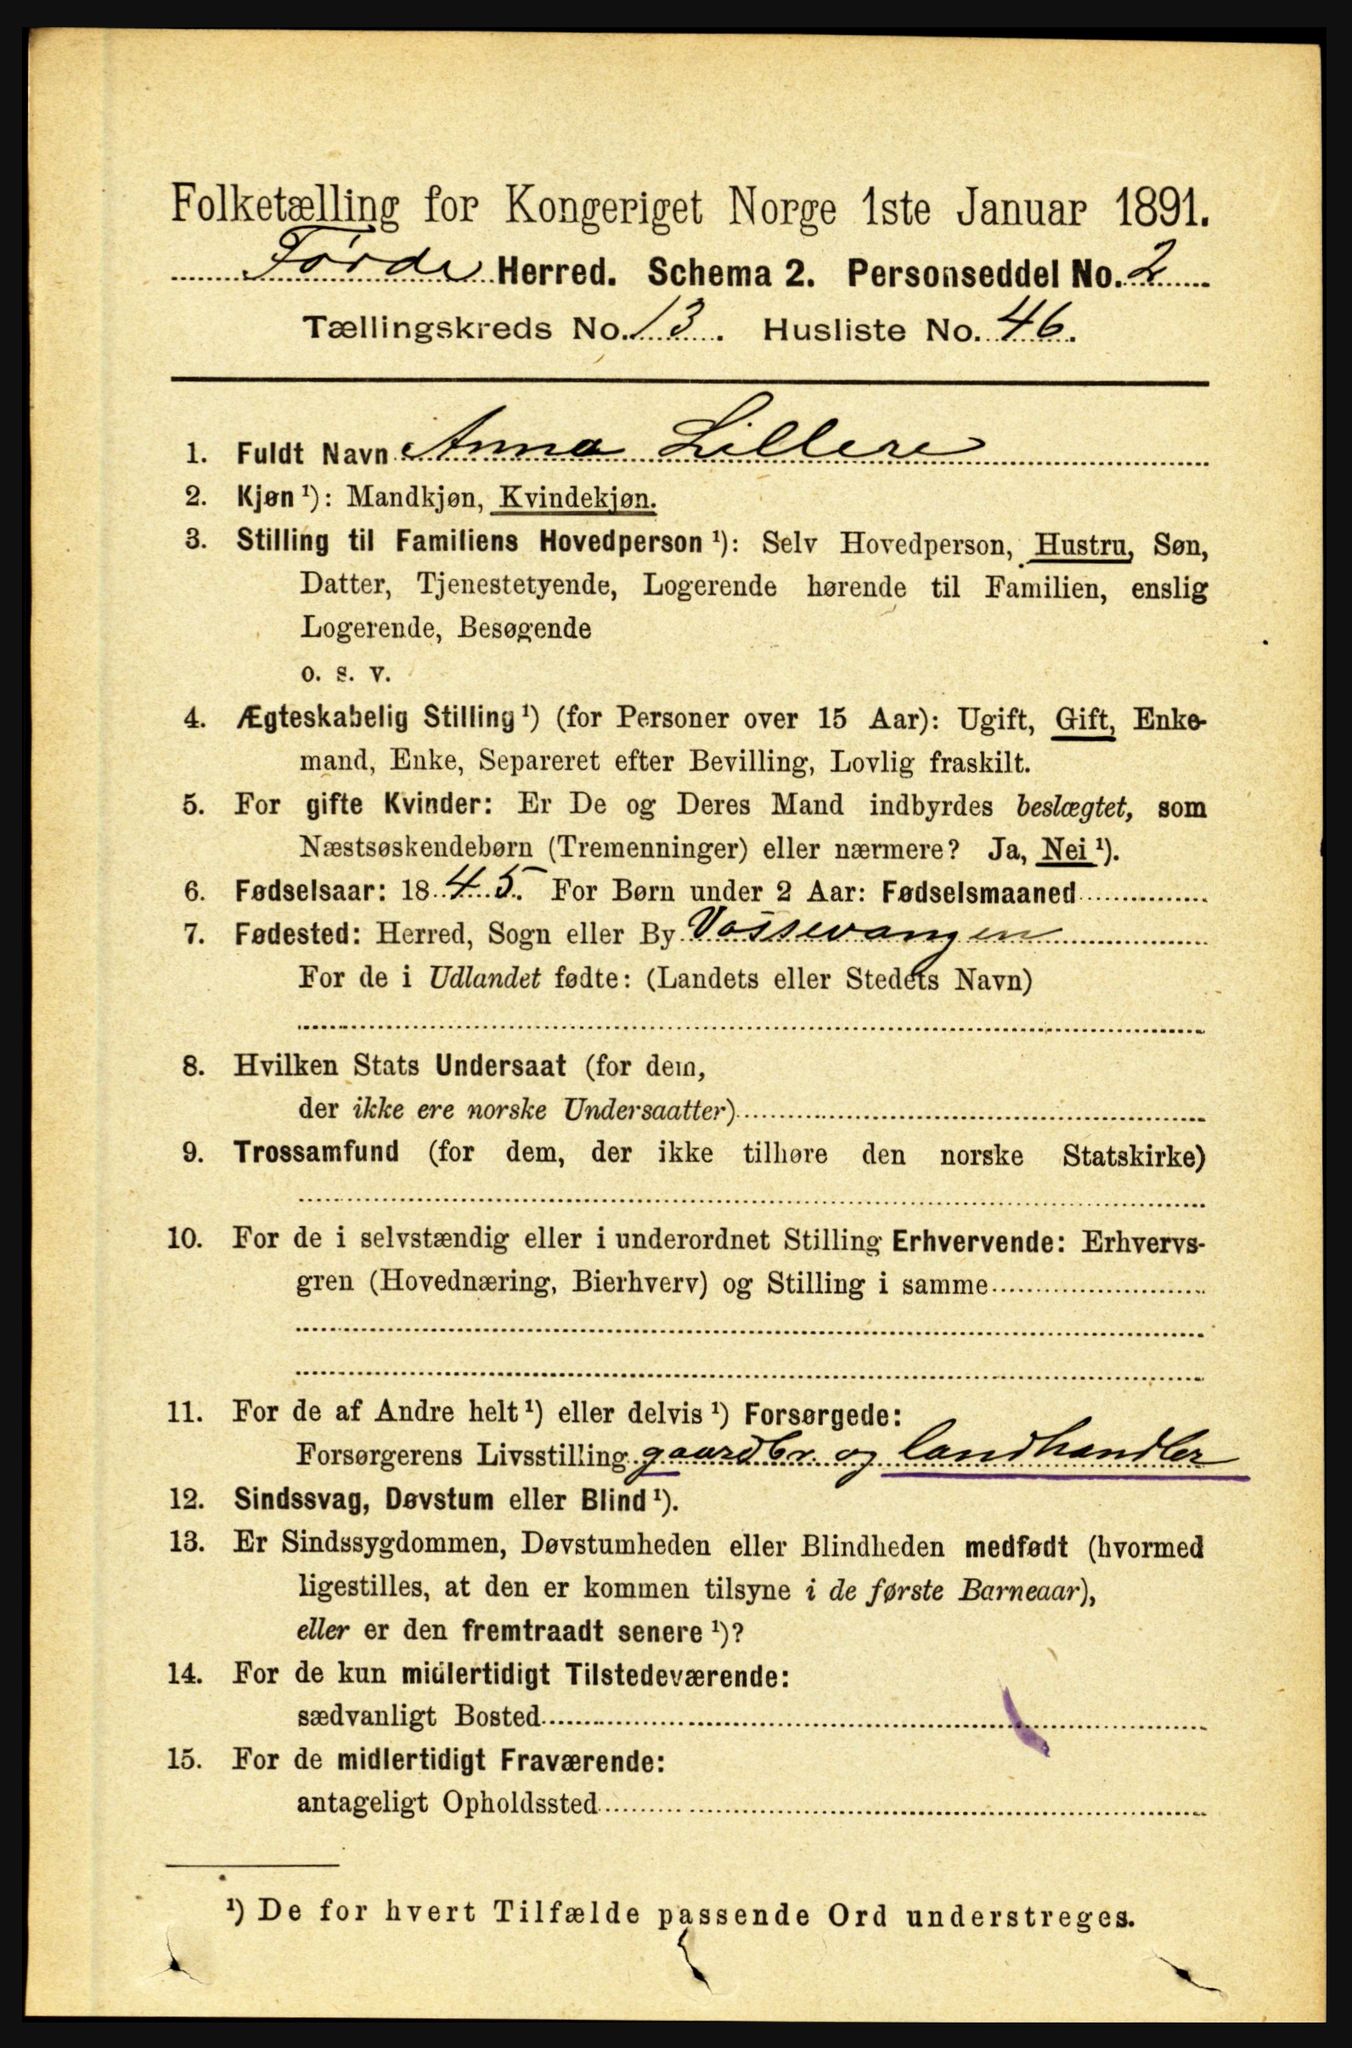 Folketælling for Kongeriget Norge 1ste Januar 1891.
Førde Herred. Schema 2. Personseddel No. 2
Tællingskreds No. 13. Husliste No. 46.
1. Fuldt Navn Anna Lillere
2. Kjøn ¹): Mandkjøn, Kvindekjøn.
3. Stilling til Familiens Hovedperson ¹): Selv Hovedperson, Hustru, Søn,
Datter, Tjenestetyende, Logerende hørende til Familien, enslig
Logerende, Besøgende
o. s. v.
4. Ægteskabelig Stilling ¹) (for Personer over 15 Aar): Ugift, Gift, Enke-
mand, Enke, Separeret efter Bevilling, Lovlig fraskilt.
5. For gifte Kvinder: Er De og Deres Mand indbyrdes beslægtet, som
Næstsøskendebørn (Tremenninger) eller nærmere? Ja, Nei ¹).
6. Fødselsaar: 1845. For Børn under 2 Aar: Fødselsmaaned
7. Fødested: Herred, Sogn eller By Vossevangen
For de i Udlandet fødte: (Landets eller Stedets Navn)
8. Hvilken Stats Undersaat (for dem,
der ikke ere norske Undersaatter)
9. Trossamfund (for dem, der ikke tilhøre den norske Statskirke)
10. For de i selvstændig eller i underordnet Stilling Erhvervende: Erhvervs-
gren (Hovednæring, Bierhverv) og Stilling i samme
11. For de af Andre helt ¹) eller delvis ¹) Forsørgede:
Forsørgerens Livsstilling gaardbr. og landhandler
12. Sindssvag, Døvstum eller Blind ¹).
13. Er Sindssygdommen, Døvstumheden eller Blindheden medfødt (hvormed
ligestilles, at den er kommen tilsyne i de første Barneaar),
eller er den fremtraadt senere ¹)?
14. For de kun midlertidigt Tilstedeværende:
sædvanligt Bosted
15. For de midlertidigt Fraværende:
antageligt Opholdssted
¹) De for hvert Tilfælde passende Ord understreges.